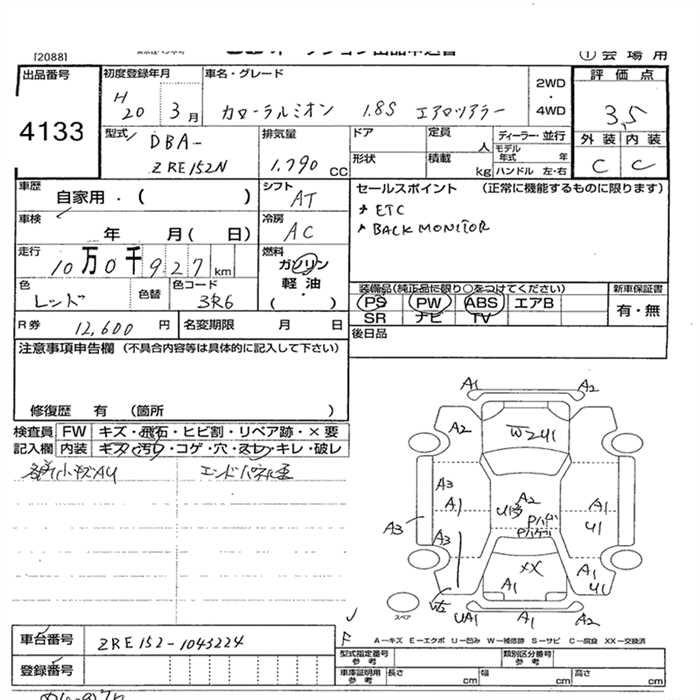 [2088]
① 会 場 用
出品番号
4133
初度登録年月
H 20 3 月
車名・グレード
カローラルミオン 1.8S エアロツアラー
2WD
・
4WD
評 価 点
3.5
外 装 内 装
C C
型式
DBA-
ZRE152N
排気量
1.790 CC
ドア
形状
定員
人
積載
kg
ディーラー・並行
モデル年式 年
ハンドル 左・右
車歴
自家用 ・ ( )
シフト
AT
セールスポイント (正常に機能するものに限ります)
ETC
BACK MONITOR
車検
年 月( 日)
冷房
AC
走行
10 万 0 千 9 2 7 km
燃料
ガソリン
軽 油
( )
色
レッド
色替
色コード
3R6
装備品(純正品に限り○をつけてください)
PS PW ABS エアB
SR ナビ TV
新車保証書
有・無
R券 12,600 円
名変期限 月 日
後日品
注意事項申告欄 (不具合内容等は具体的に記入して下さい)
修復歴 有 (箇所 )
検査員
記入欄
FW キズ・飛石・ヒビ割・リペア跡・×要
内装 キズ・汚レ・コゲ・穴・スレ・キレ・破レ
各部小キズAU
エンドパネル歪
A1 A2
A2 W2U1
A3 A1 A2 A1
A3 U1
A3
XX
A1 A1 U1
UA1 A1 A2
スペア
A-キズ E-エクボ U-凹み W-補修跡 S-サビ C-腐食 XX-交換済
車台番号
ZRE152-1043224
登録番号
型式指定番号
参 考
類別区分番号
参 考
車庫証明用
参 考
長さ cm 幅 cm 高さ cm